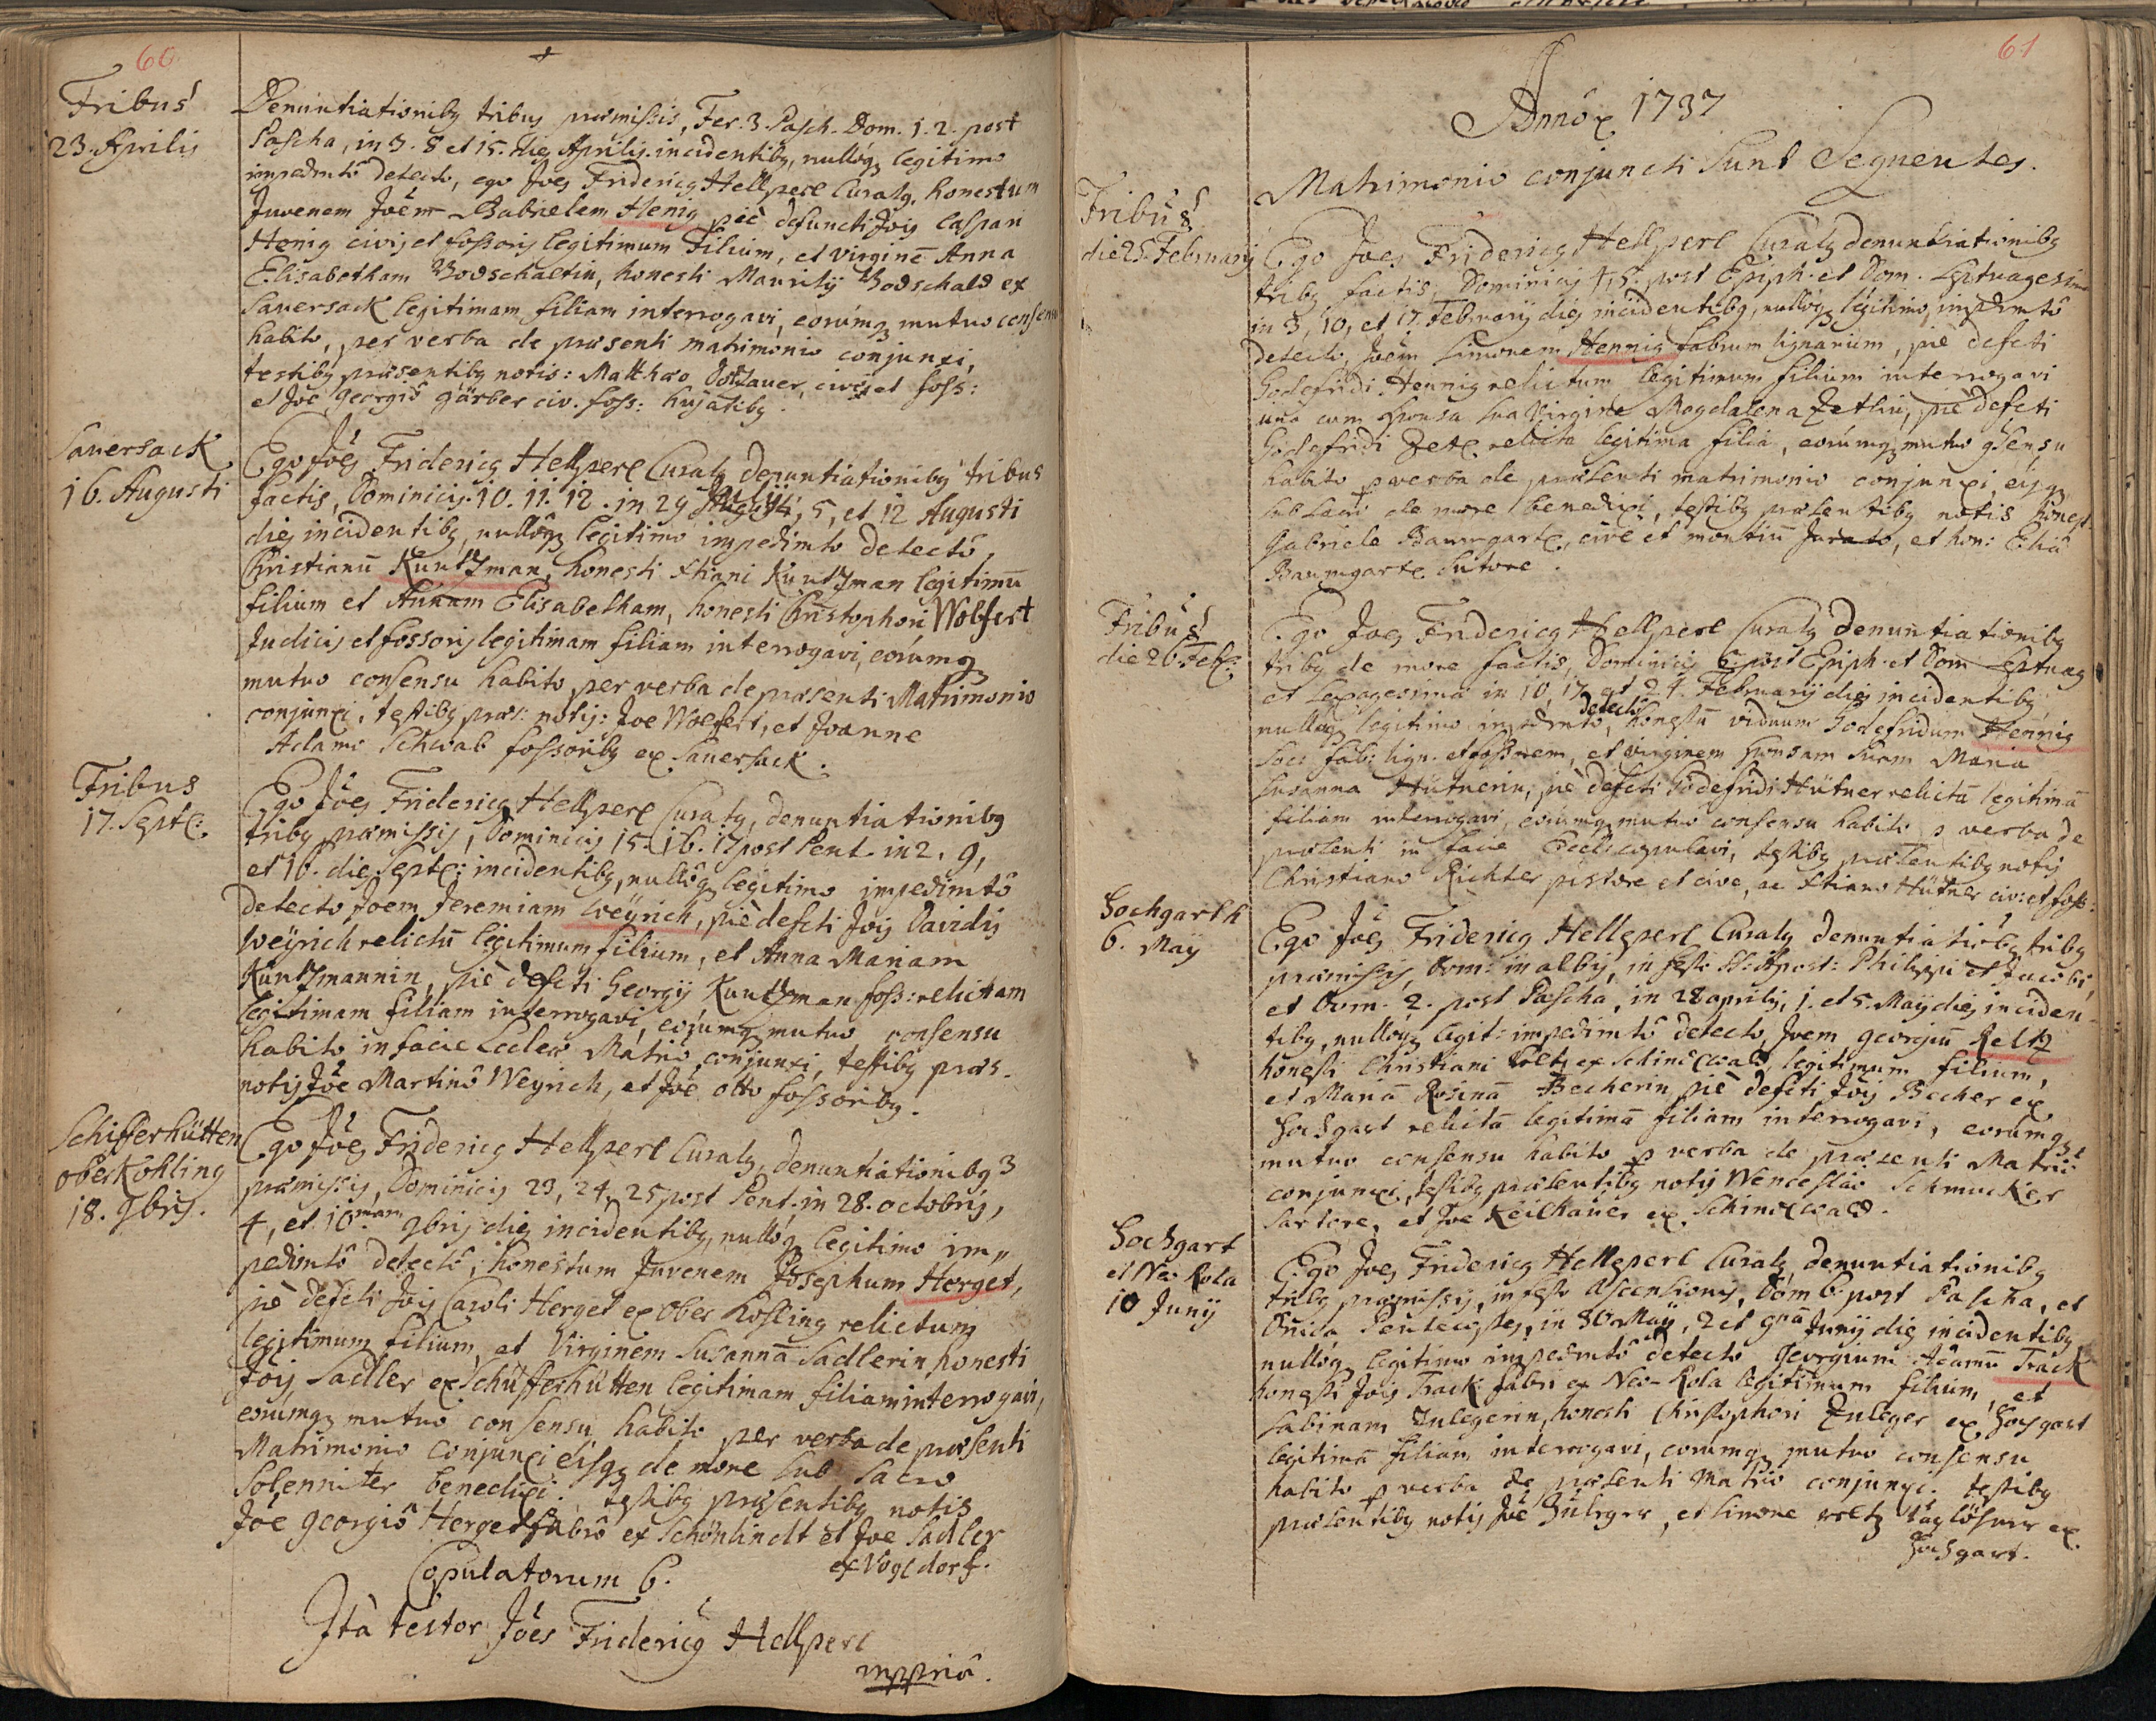 60
Tribus
23. Aprilis
Denuntiationibg tribus praemissis, Fer. 3. Pasch. Dom. 1. 2. post
Pascha, in 3. 8 et 15. dieg Aprilis incidentibg, nullóqz legitimo
impedmtô detecto, ego Joes Fridericg Hellperl Curatg, honestum
Juvenem Joem Gabrielem Henig piè defuncti Jois Caspari
Henig civis et fossoris legitimum Filium, et virginē Anna
Elisabetham Bodschaltin, honesti Mauritÿ Bodschald ex
Sauersack legitimam filiam interrogavi, eorúmqz mutuo consensu
habito, per verba de praesenti matrimonio conjunxi,
testibg praesentibg notis: Matthaeo , cive et foss:
et Joe Georgiô Gärber civ. foss: hujatibg.
Sauersack
16. Augusti
Ego Joes Fridericg Hellperl Curatg denuntiationibg tribus
factis, Dominicis 10. 11. 12. in 29 Julij, 5, et 12 Augusti
dieg incidentibg, nullóqz legitimo impedimto detectô,
Christianū Kuntzman, honesti Xtiani Kuntzman legitimū
filium et Annam Elisabetham, honesti Christophori Wolfert
Judicis et fossoris legitimam filiam interrogavi, eorúmqz
mutuo consensu habito, per verba de praesenti Matrimonio
conjunxi, testibg praes: notis: Joe Wolfert, et Joanne
Adamo Schwab fossoribg ex Sauersack.
Tribus
17. Septē:
Ego Joes Fridericg Hellperl Curatg, denuntiationibg
tribg praemissis, Dominicis 15. 16. 17 post Pent. in 2, 9,
et 16. dieg Septē: incidentibg, nullóqz legitimo impedimtô
detecto Joem Jeremiam Weÿrich, piè defcti Jois Davidis
Weÿrich relictū legitimum filium, et Anna Mariam
Kuntzmannin, piè defcti Georgÿ Kuntzman foss: relictam
legitimam filiam interrogavi, eorúmqz mutuo consensu
habito in facie Eccleae Matriô conjunxi, testibg praes.
notis Joe Martinô Weyrich, et Joê Otto fossoribg.
Schifferhütten
OberKohling
18. 9bris.
Ego Joes Fridericg Hellperl Curatg, denuntiationibg 3
praemissis, Dominicis 23, 24, 25 post Pent. in 28. octobris,
4, et 10mam 9bris dieg incidentibg, nullóqz legitimo im„
pedimtô detectô, honestum Juvenem Josephum Herget,
piè defcti Jois Caroli Herget ex Ober Kohling relictum
legitimum filium, et Virginem Susannā Sadlerin honesti
Jois Sadler ex Schüfferhütten legitimam filiam interrogavi,
eorúmqz mutuo consensu habito per verba de praesenti
Matrimonio conjunxi eisqz de more sub sacro
solenniter benedixi. testibg praesentibg notis
Joe Georgiô Herget fabrô ex Schönlindt et Joe Sadler
ex Vogldorf.
Copulatorum 6.
Ità testor Joes Fridericg Hellperl
mppriâ.
61
Annô 1737
Matrimonio conjuncti sunt Sequentes.
Tribus
die 25 Februarÿ
Ego Joes Fridericg Hellperl Curatg denuntiationibg
tribg factis, Dominicis 4, 5. post Epiph. et Dom. Septuagesima
in 3, 10, et 17. Februarÿ dieg incidentibg, nullóqz legitimo, impedmtô
detecto, Joēm Simonem Hennig fabrum lignarium, piè defcti
Godefridi Hennig relictum legitimum filium interrogavi
unà cum sponsa sua Virgine Magdalena Zetlin, piè defcti
Godefridi Zetl. relicta legitima filia, eorúmqz mutuo consensu
habito p verba de praesenti matrimonio conjunxi, eisqz
sub sacro de more benedixi, testibg praesentibg notis honest:
Gabriele Baumgartl, cive et montiū Jurato, et hon: Eliâ
Baumgartl sutore.
Tribus
die 26. Feb:
Ego Joes Fridericg Hellperl Curatg denuntiationibg
tribg de more factis, Dominicis 6. post Epiph. et Dom Septuag
et Sexagesima in 10, 17 et 24. Februarÿ dieg incidentibg,
nullóqz legitimo impedmto detecto, honestū viduum Godefridum Hennig
Soci fab: lign. et fossorem, et virginem sponsam suam Maria
Susanna Hütnerin, piè defcti Godefridi Hütner relictā legitimā
filiam interrogavi, eorúmqz mutuo consensu habito p verba de
praesenti in facie Eccle copulavi, testibg praesentibg notis
Christiano Richter pistore et cive, ac Xtiano Hütner civ: et foss:
Hochgarth
6. Maÿ
Ego Joes Fridericg Hellperl Curatg denuntiatiobg tribg
praemissis, Dom: in albis, in festo SS: Apost: Philippi et Jacobi,
et Dom. 2. post Pascha, in 28 aprilis, 1. et 5. Maÿ dieg inciden-
tibg, nullóqz legit: impedimtô detecto, Joem Georgiū Reltz
honesti Christiani Reltz ex Schindlwald, legitimum filium,
et Mariā Rosinā Becherin, piè defcti Jois Becher ex
Hochgart relictā legitimā filiam interrogavi, eorúmqz
mutuo consensu habito p verba de praesenti Matriô
conjunxi, testibg praesentibg notis Wenceslao Schmucker
sartore, et Joe Keilhauer ex Schindlwald.
Hochgart
et Neo Rola
10 Junÿ
Ego Joes Fridericg Hellperl Curatg, denuntiationibg
tribg praemissis, in festo Ascensionis, Dom 6. post Pascha, et
Dnica Pentecostes, in 30 Maÿ, 2 et 9nâ Junÿ dieg incidentibg
nullóqz legitimo impedmtô detecto Georgium Adamū Track
honesti Jois Track fabri ex Neo-Rola legitimum filium, et
Sabinam Zulegerin, honesti Christophori Zuleger ex Hochgart
legitimā filiam interrogavi, eorúmqz mutuo consensu
habito p verba de praesenti Matriô conjunxi. testibg
praesentibg notis Joê Zuleger, et Simone taglöhner ex
Hochgart.